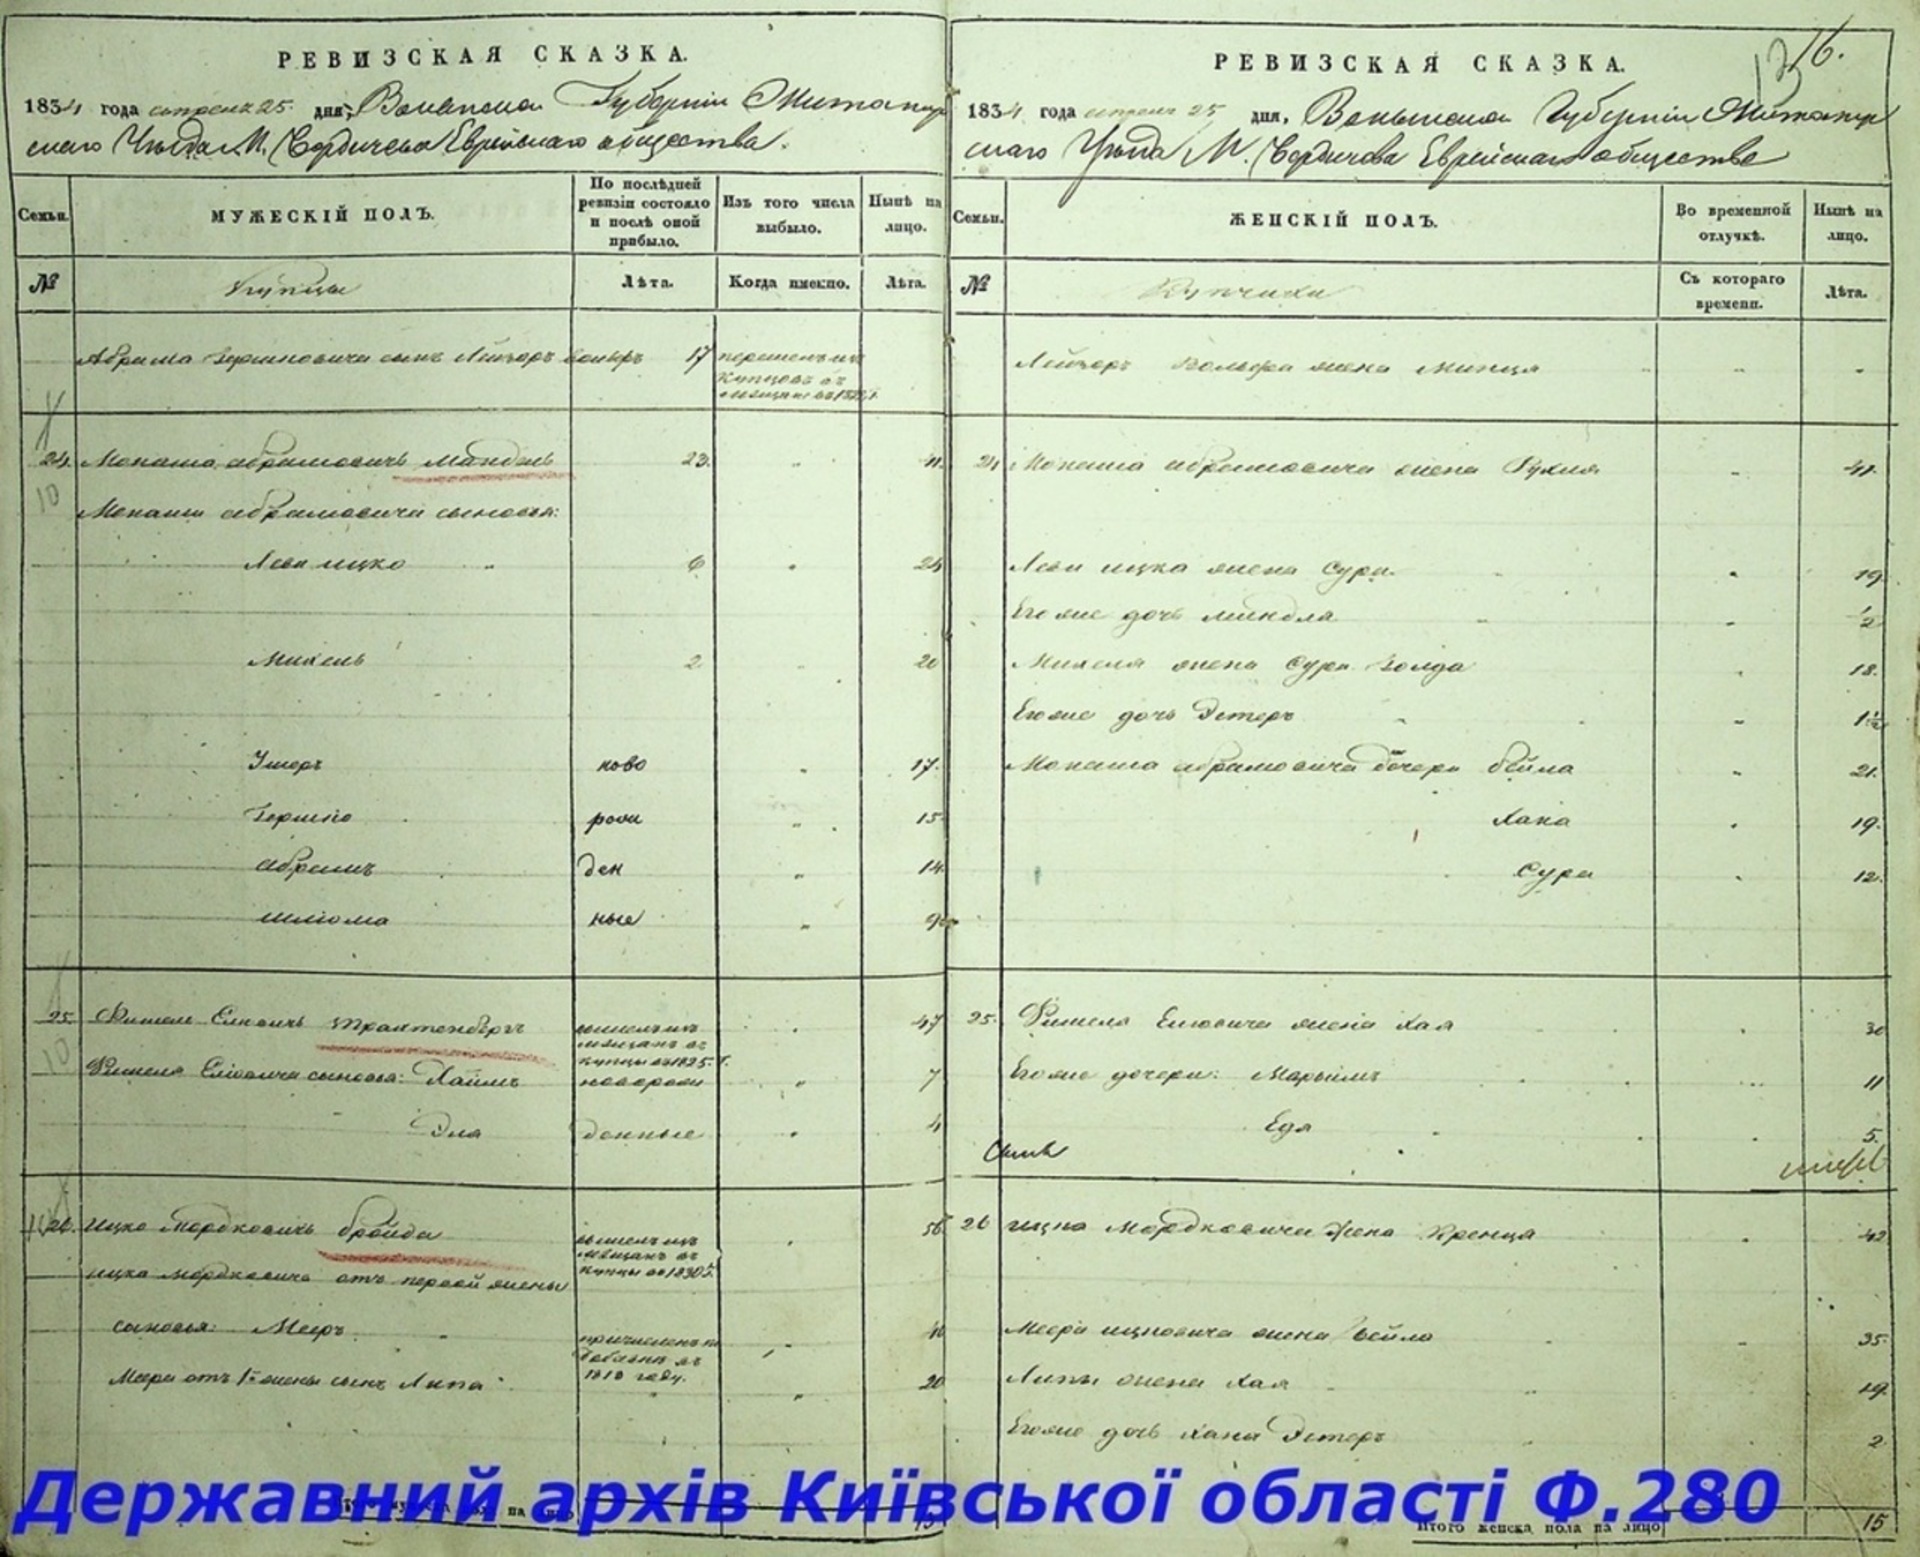 РЕВИЗСКАЯ СКАЗКА.
1834 года апреля 25 дня, Волынской Губерніи Житомир
скаго Уѣзда М. Бердичева Еврейскаго общества.
Семьи.
МУЖЕСКІЙ ПОЛЪ.
По послѣдней ревизіи состояло и послѣ оной прибыло.
Изъ того числа выбыло.
Нынѣ на лицо.
№
Купцы
Лѣта.
Когда имекно.
Лѣта.
Абрама Гершковича сынъ Лейзоръ Вольфъ 17 перешелъ изъ
купцовъ въ
мещане въ
24. Монаша Абрамовичъ Мандель 23. 41.
10
Монаши Абрамовича сыновья:
Леви Ицко 6 24
Михель 2 20
Ушеръ ново 17.
Гершко рож 15
Абрамъ ден 14
Шліома ные 9
25. Фишель Еліовичъ Трахтенбергъ вышелъ изъ 47
мещанъ въ
купцы въ 1825 г.
10
Фишеля Еліовича сыновья: Хаимъ новорож 7
Эла денные 4
26. Ицко Мордковичъ Бройда вышелъ изъ 56
мещанъ въ
купцы въ 1830 г.
Ицка Мордковича отъ первой жены
сыновья: Мееръ 40
причисленъ къ
въ
1818 году.
Меера отъ 1й жены сынъ Липа 20
на лицо
РЕВИЗСКАЯ СКАЗКА.
16.
1834 года апреля 25 дня, Волынской Губерніи Житомир
скаго Уѣзда М. Бердичева Еврейскаго общества
Семьи.
ЖЕНСКІЙ ПОЛЪ.
Во временной отлучкѣ.
Нынѣ на лицо.
№
Купчихи
Съ котораго времени.
Лѣта.
Лейзоръ Вольфа жена Минця
24 Монаша Абрамовича жена Рухля 41.
Леви Ицка жена Сура 19
Его же дочь Миндля 1/2
Михеля жена Сура Голда 18.
Его же дочь Эстеръ 1 1/2
Монаша Абрамовича дочери Бейла 21.
Хана 19.
Сура 12.
25. Фишеля Еліовича жена Хая 30
Его же дочери: Марьямъ 11
Едя 5.
26 Ицка Мордковича жена Кренця 42
Меера Ицковича жена Бейла 35.
Липы жена Хая 19.
Его же дочь Хана Эстеръ 2
Итого женска пола на лицо 15
Державний архів Київської області Ф.280